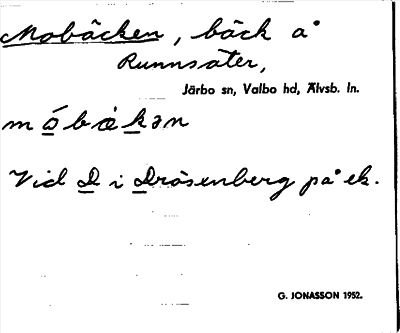 Mobäcken, bäck å
Runnsäter,
Järbo sn, Valbo hd, Älvsb. ln.
Vid D i Dråsenberg på ek.
G. JONASSON 1952.